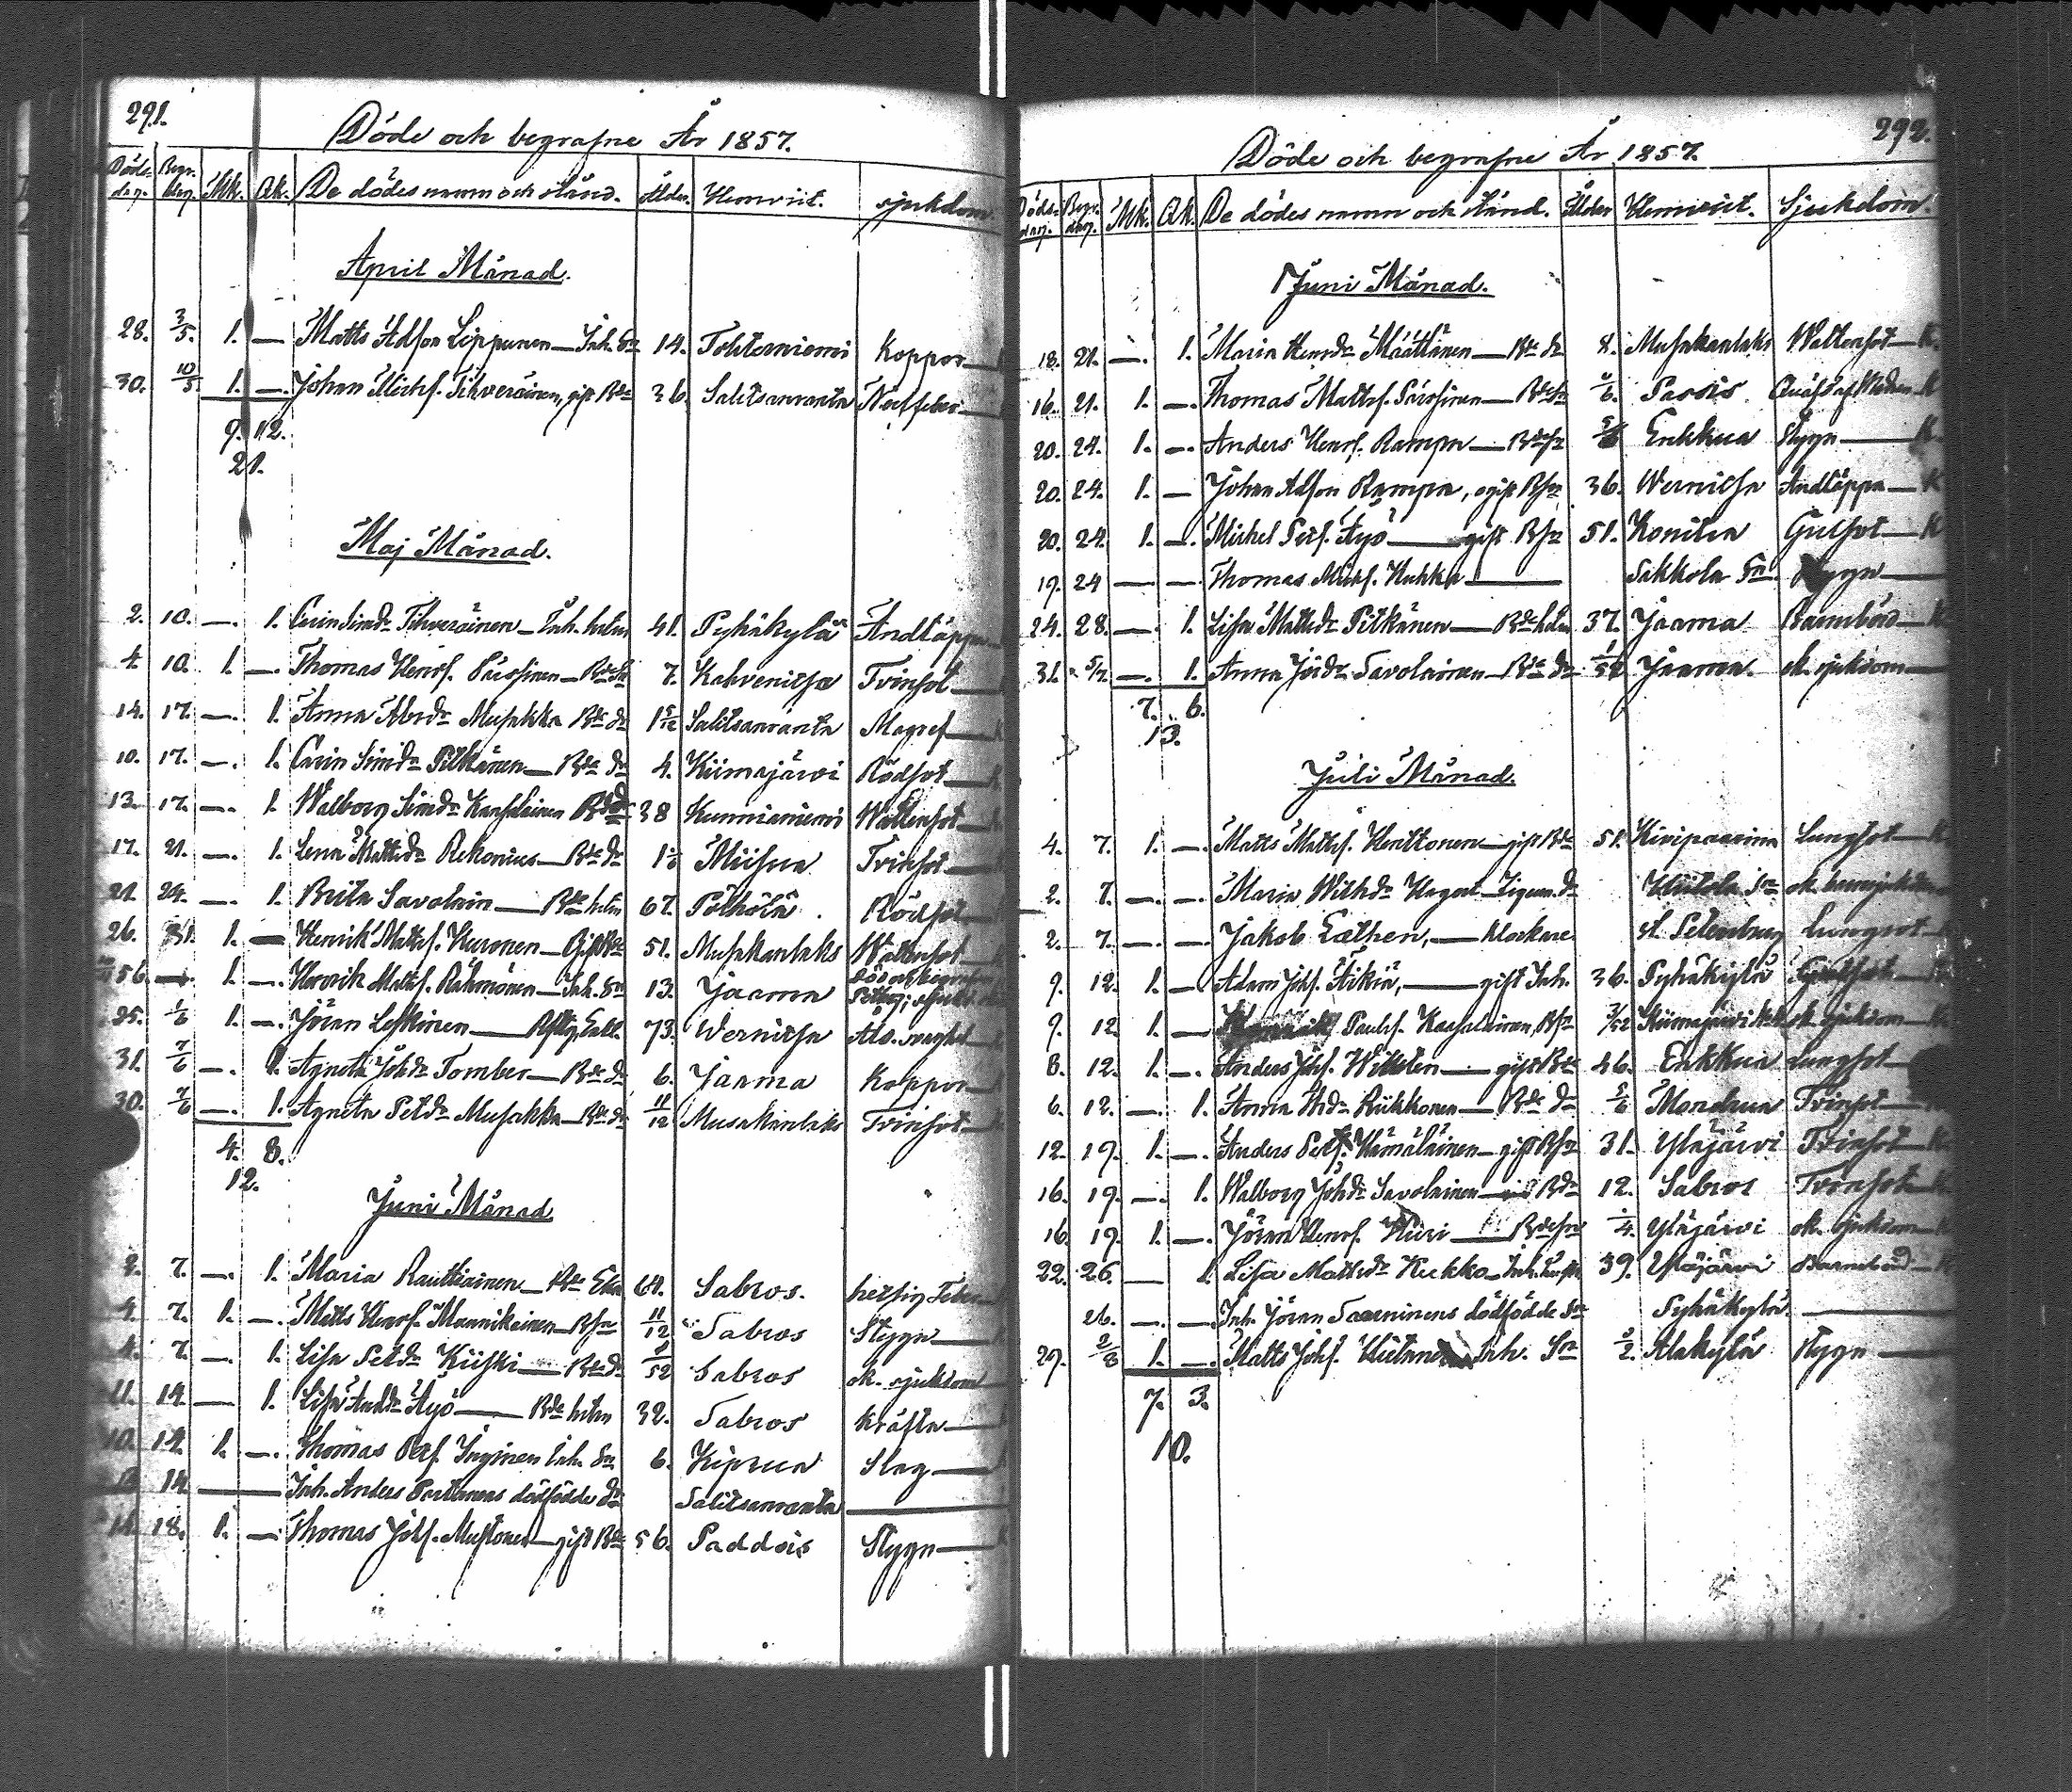 291.
Döde och begrafne År 1857.
Döds-dag. Begr. dag. Mk. Qk. De dödes namn och stånd. Ålder. Hemvist. sjukdom
April Månad.
28. 3/5. 1. — Matts Adson Lippunen — Inh. Sn 14. Tohteniemi Koppor
30. 10/5 1. — Johan Tihveräinen, gift Bde 36. Salitsanranta Nerffeber
9. 12.
21.
Maj Månad.
2. 10. — 1. Carin Simdr Tihveräinen — Inh. hstru 41. Pyhäkylä Andtäppa
4. 10. 1. — Thomas Henrs. Pärssinen — Bde Sn 7. Kahvenitsa Tvinsot
14. 17. — 1. Anna Abrdr Musakka Bde dr 1 5/12 Salitsanranta Magref
10. 17. — 1. Carin Simdr Pitkänen — Bde dr 4. Kiimajärvi Rödsot
13. 17. — 1. Walborg Simdr Karhulainen 38 Kunnianiemi Wattensot
17. 21. — 1. Lena Mattsdr Rekonius — Bde dr Miisua Tvinsot
21. 24. — 1. Brita Savolain — Bde hstru 67. Pölhölä. Rödsot
26. 31. 1. — Henrik Matts. Huronen — Gift Bde 51. Musakanlaks Wattensot
56. — 1. — Henrik Matts. Rähmönen — Inh. Sn 13. Jaama
25. 1/6 1. — Jöran Leskinen 73. Wernitsa Åld. svaghet
31. 7/6 — 1. Agneta Johdr Tomber — Bde dr 6. Jaama Koppor
30. 7/6 — 1. Agneta Petdr Musakka — Bde dr 11/12 Musakanlaks Tvinsot
4. 8.
12.
Juni Månad
2. 7. — 1. Maria Rauttiainen — Bde Eka 64. Sabros. hetsig Feber
4. 7. 1. — Matts Henrs. Mannikainen — Bsn 11/12 Sabros Stygn
4. 7. — 1. Lisa Petdr Kiiski — Bde dr Sabros ok. sjukdom
11. 14. — 1. Lisa Andr Äyö — Bde hstru 32. Sabros Kräfta
10. 14. 1. — Thomas Pers. Inginen Inh. Sn 6. Kiprua Slag
14. — Inh. Anders Partanens dödfödde dr Salitsanranta
14. 18. 1. — Thomas Johs. Mustonen — gift Bde 56. Paddois Stygn
292.
Döde och begrafne År 1857.
Döds-dag. Begr. dag. Mk. Qk. De dödes namn och stånd. Ålder Hemvist. Sjukdom.
Juni Månad.
18. 21. — 1. Maria Henrdr Määttänen — Bde dr 8. Musakanlaks Wattensot — K.
16. 21. 1. — Thomas Matts. Pärssinen — Bde Sn Qväfd af Modren — K
20. 24. 1. — Anders Henrs. Rampa — Bde Sn Enkkua Stygn — K
20. 24. 1. — Johan Adson Rampa, ogift Bsn 36. Wernitsa Andtäppa — K
20. 24. 1. — Michel Pers. Äyö — gift Bsn 51. Konitsa Gulsot — K
19. 24 — — Thomas Kuhka — Sakkola Sn Stygn —
24. 28. — 1. Lisa Mattsdr Pitkänen — Bde hstru 37. Jaama Barnsbörd — K
31. 5/7 — 1. Anna Jördr Savolainen — Bde dr Jaama. ok. sjukdom —
7. 6.
13.
Juli Månad.
4. 7. 1. — Matts Matts. Hunttonen — gift Bde 51. Kivipaarina Lungsot — K
2. 7. — — Maria Wilhdr Hagert — Zigen. dr Hiitola Sn
2. 7. — — Jakob Lathen, — klockare St Petersburg Lungsot
9. 12. 1. — Adam Johs. Äikiä, — gift Inh. 36. Pyhäkylä Gulsot
9. 12. 1. — Pauls. Karhulainen, Bsn 3/52 Kiimajärvi ok. sjukdom
8. 12. 1. — Anders Johs. — gift Bde 46. Enkkua Lungsot
6. 12. — 1. Anna Riikkonen — Bde dr Mandrua Tvinsot
12. 19. 1. — Anders Pers. Hämäläinen — gift Bsn 31. Yläjärvi Tvinsot
16. 19. — 1. Walborg Johdr Savolainen — Bdr 12. Sabros Tvinsot
16. 19. 1. — Jöran Henrs. Hiiri — Bde Sn Yläjärvi ok. sjukdom
22. 26. — 1. Lisa Mattsdr Kukko — Inh. hustr 39. Yläjärvi Barnsbörd
26. — — Inh. Jöran Saareninens dödfödde Sn Pyhäkylä —
29. 2/8 1. — Matts Johs. Inh. Sn Alakylä Stygn —
7. 3.
10.